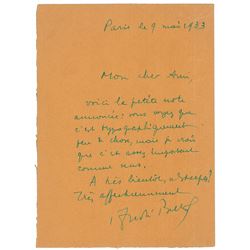 Paris le 9 mai 1933
Mon cher Ami,
voici la petite note
annoncée : vous voyez que
c'est typographiquement
peu de chose, mais je crois
que c'est assez important
comme sens.
A très bientôt, n'est-ce pas ?
Très affectueusement
André Breton